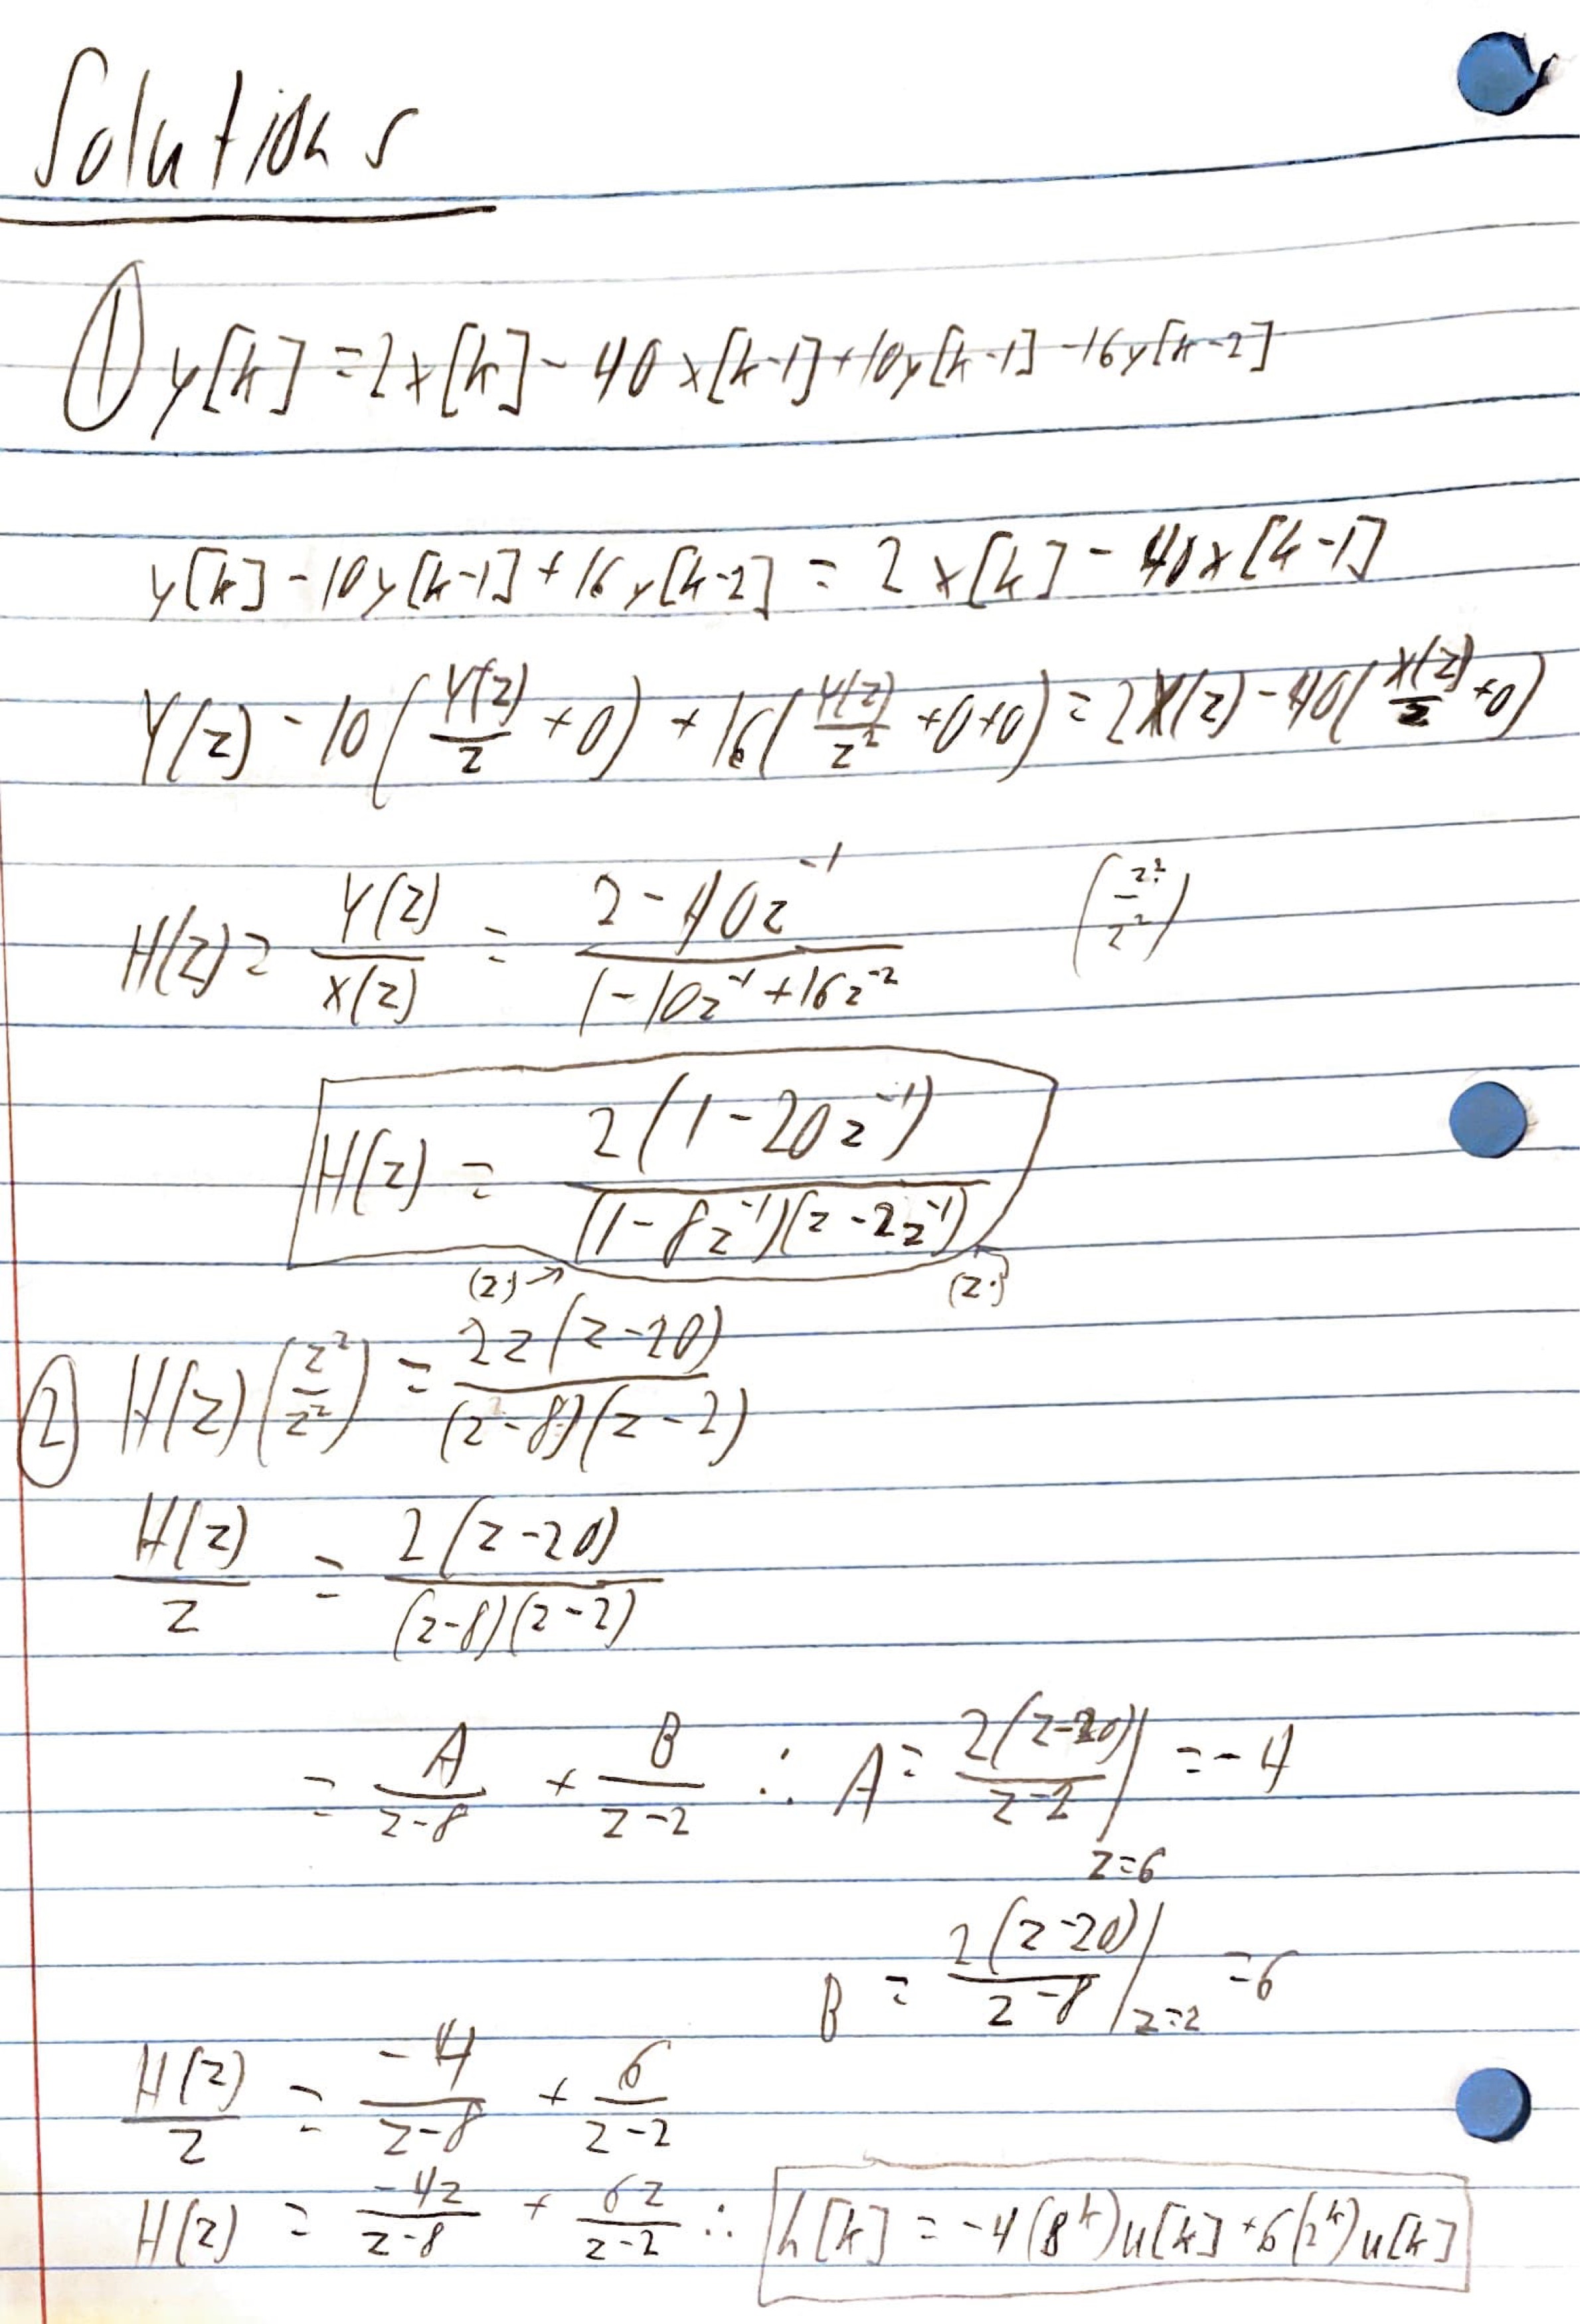 Solutions
① y[k] = 2x[k] - 40x[k-1] + 10y[k-1] - 16y[k-2]
y[k] - 10y[k-1] + 16y[k-2] = 2x[k] - 40x[k-1]
Y(z) - 10(Y(z)/z + 0) + 16(Y(z)/z² + 0 + 0) = 2X(z) - 40(X(z)/z + 0)
H(z) = Y(z)/X(z) = (2 - 40z⁻¹)/(1 - 10z⁻¹ + 16z⁻²) (z²/z²)
H(z) = 2(1 - 20z⁻¹)/((1 - 8z⁻¹)(z - 2z⁻¹))
(z·)→ (z·)
② H(z)(z²/z²) = 2z(z - 20)/((z - 8)(z - 2))
H(z)/z = 2(z - 20)/((z - 8)(z - 2))
= A/(z - 8) + B/(z - 2) ∴ A = 2(z - 20)/(z - 2)|z=6 = -4
B = 2(z - 20)/(z - 8)|z=2 = 6
H(z)/z = -4/(z - 8) + 6/(z - 2)
H(z) = -4z/(z - 8) + 6z/(z - 2) ∴ h[k] = -4(8ᵏ)u[k] + 6(2ᵏ)u[k]